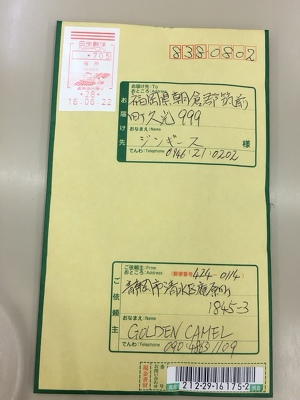 日本郵便
705
16.06.22
8380802
お届け先 To
おところ Address
お届け先
福岡県朝倉郡筑前
町久光999
おなまえ Name
ジンギース 様
でんわ Telephone
0946 21 0202
ご依頼主 From
おところ Address
郵便番号 424-0114
ご依頼主
静岡市清水区庵原町
1845-3
おなまえ Name
GOLDEN CAMEL
でんわ Telephone
212-29-16175-2